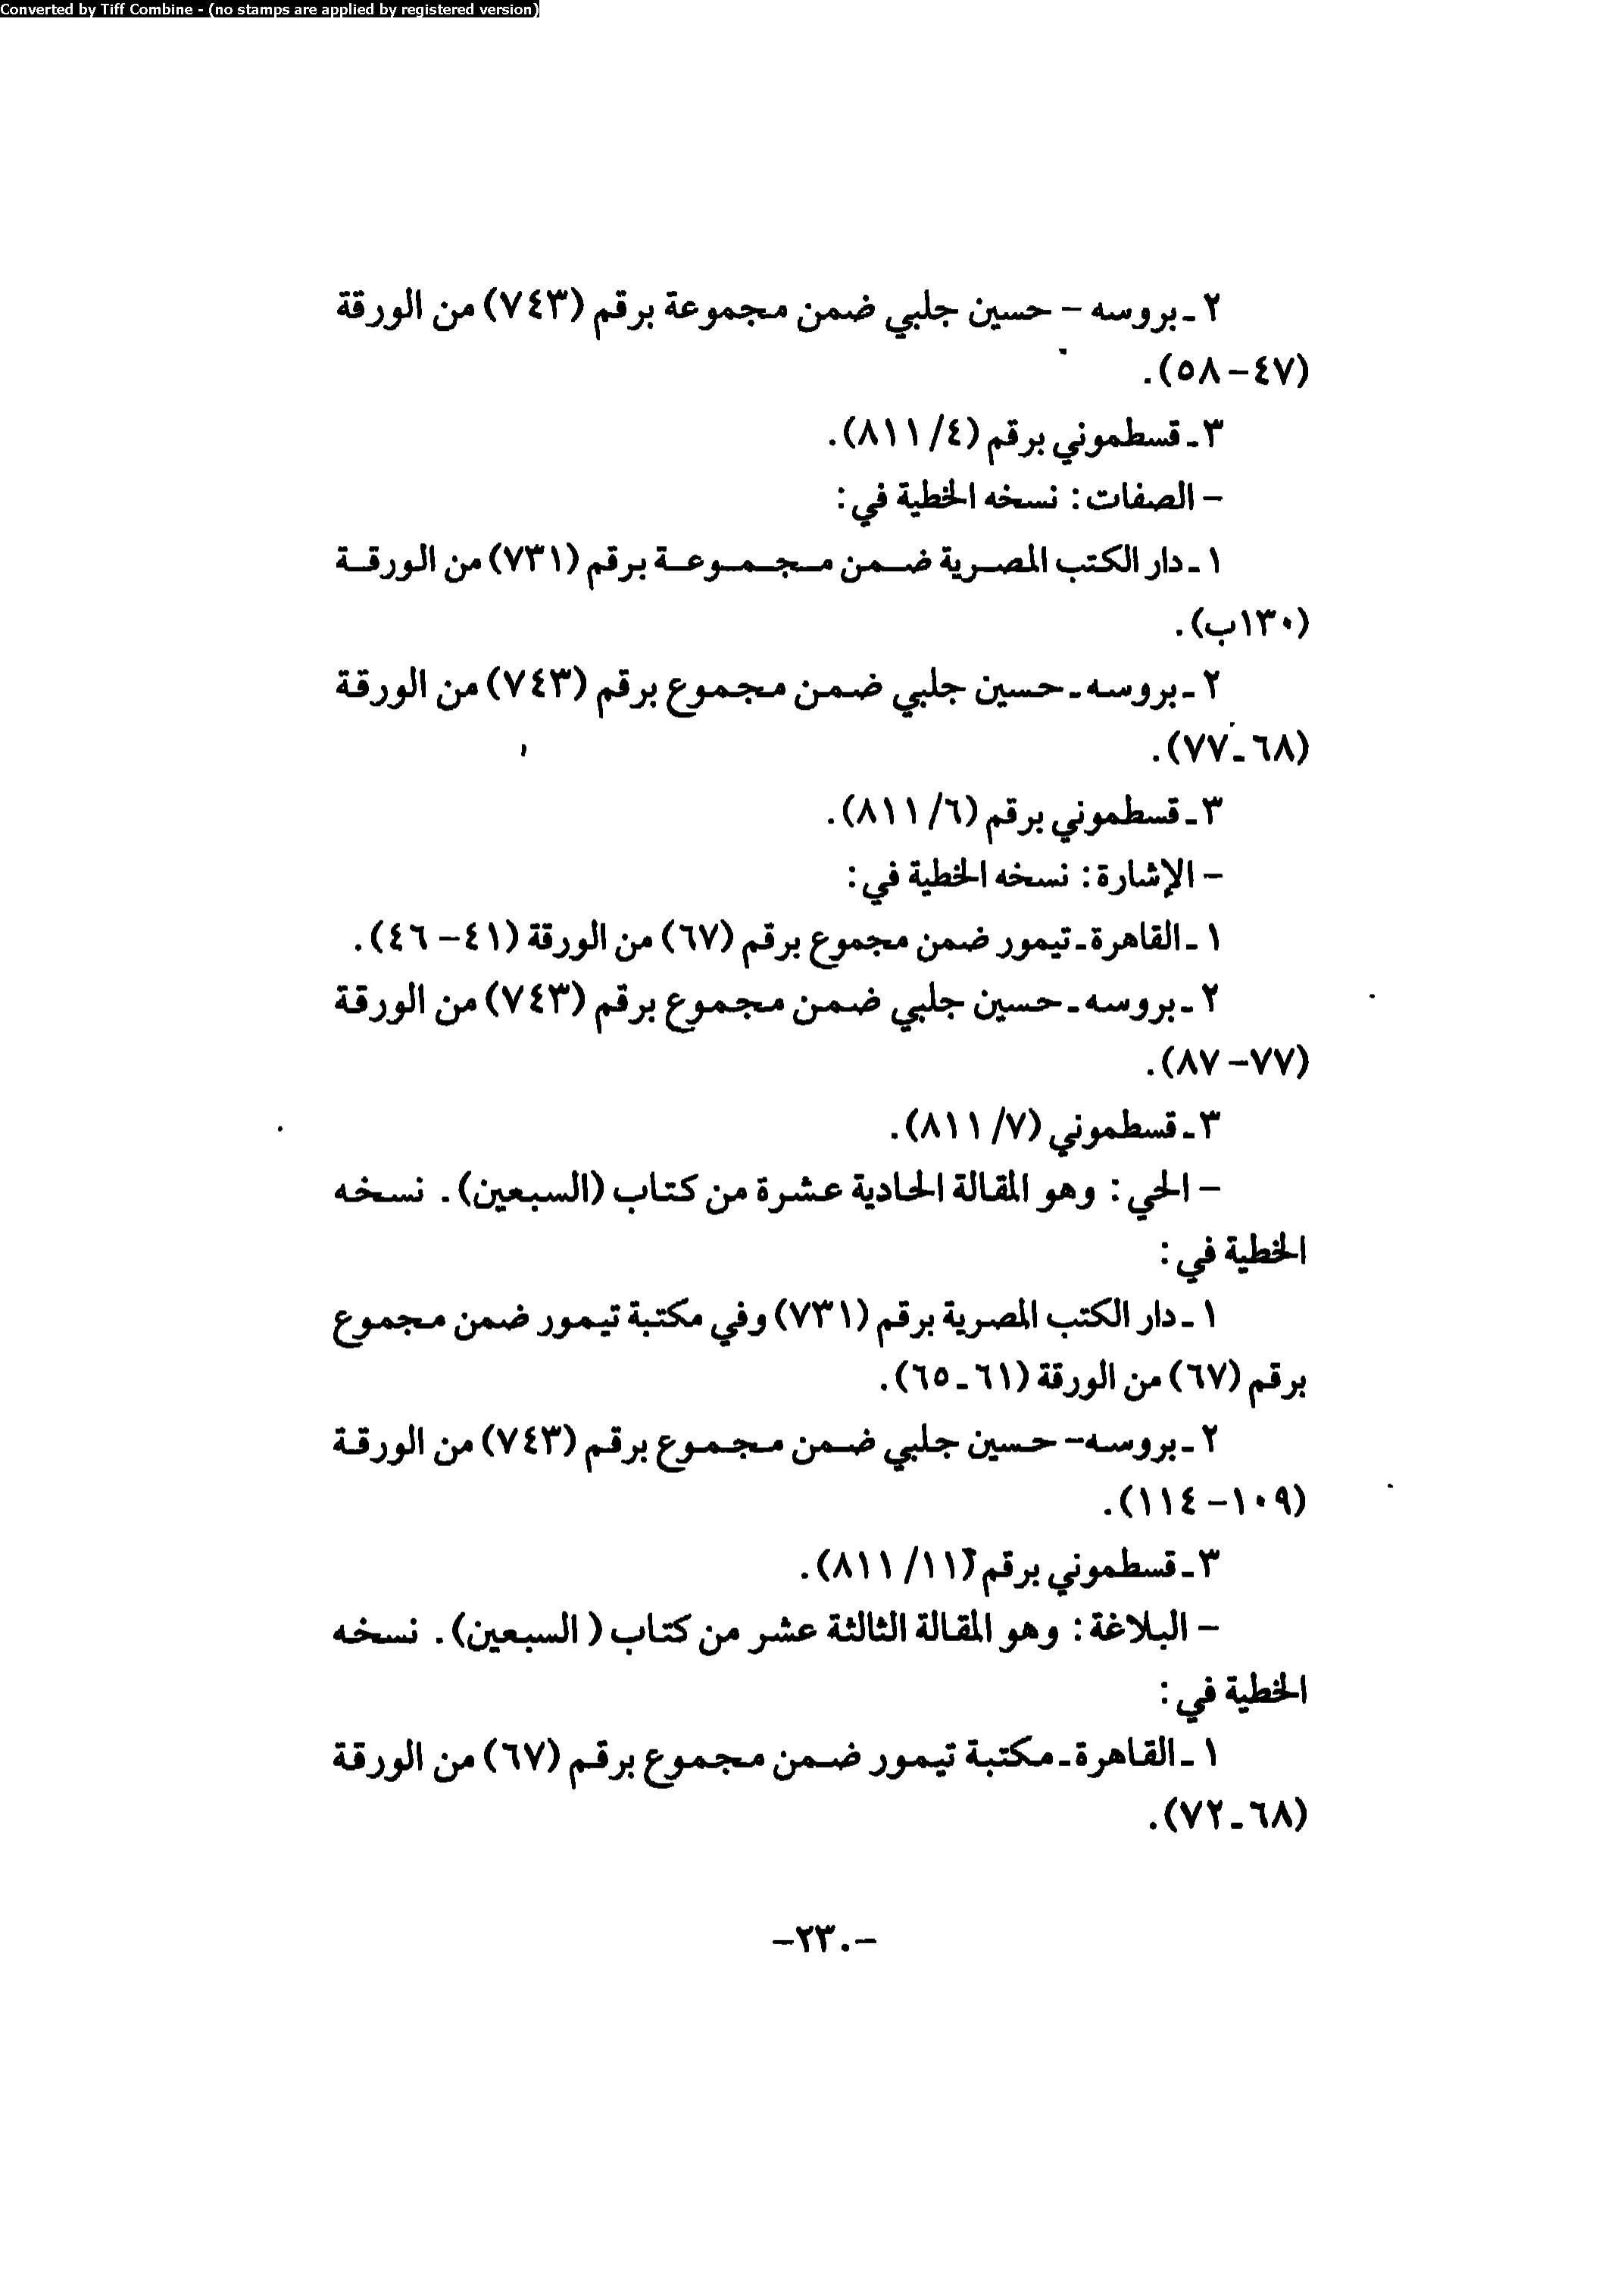 Converted by Tiff Combine - (no stamps are applied by registered version)
٢ ـ بروسه - حسين جلبي ضمن مجموعة برقم (٧٤٣) من الورقة
(٤٧-٥٨).
٣ ـ قسطموني برقم (٤/ ٨١١).
- الصفات: نسخه الخطية في:
١ ـ دار الكتب المصرية ضمن مجموعة برقم (٧٣١) من الورقة
(١٣٠ب).
٢ ـ بروسه ـ حسين جلبي ضمن مجموع برقم (٧٤٣) من الورقة
(٦٨ـ٧٧).
٣ ـ قسطموني برقم (٦/ ٨١١).
- الإشارة: نسخه الخطية في:
١ ـ القاهرة ـ تيمور ضمن مجموع برقم (٦٧) من الورقة (٤١- ٤٦).
٢ ـ بروسه ـ حسين جلبي ضمن مجموع برقم (٧٤٣) من الورقة
(٧٧- ٨٧).
٣ ـ قسطموني (٧/ ٨١١).
- الحي: وهو المقالة الحادية عشرة من كتاب (السبعين). نسخه
الخطية في:
١ ـ دار الكتب المصرية برقم (٧٣١) وفي مكتبة تيمور ضمن مجموع
برقم (٦٧) من الورقة (٦١ـ٦٥).
٢ ـ بروسه- حسين جلبي ضمن مجموع برقم (٧٤٣) من الورقة
(١٠٩- ١١٤).
٣ ـ قسطموني برقم (١١/ ٨١١).
- البلاغة: وهو المقالة الثالثة عشر من كتاب ( السبعين). نسخه
الخطية في:
١ ـ القاهرة ـ مكتبة تيمور ضمن مجموع برقم (٦٧) من الورقة
(٦٨ـ٧٢).
-٢٣٠-